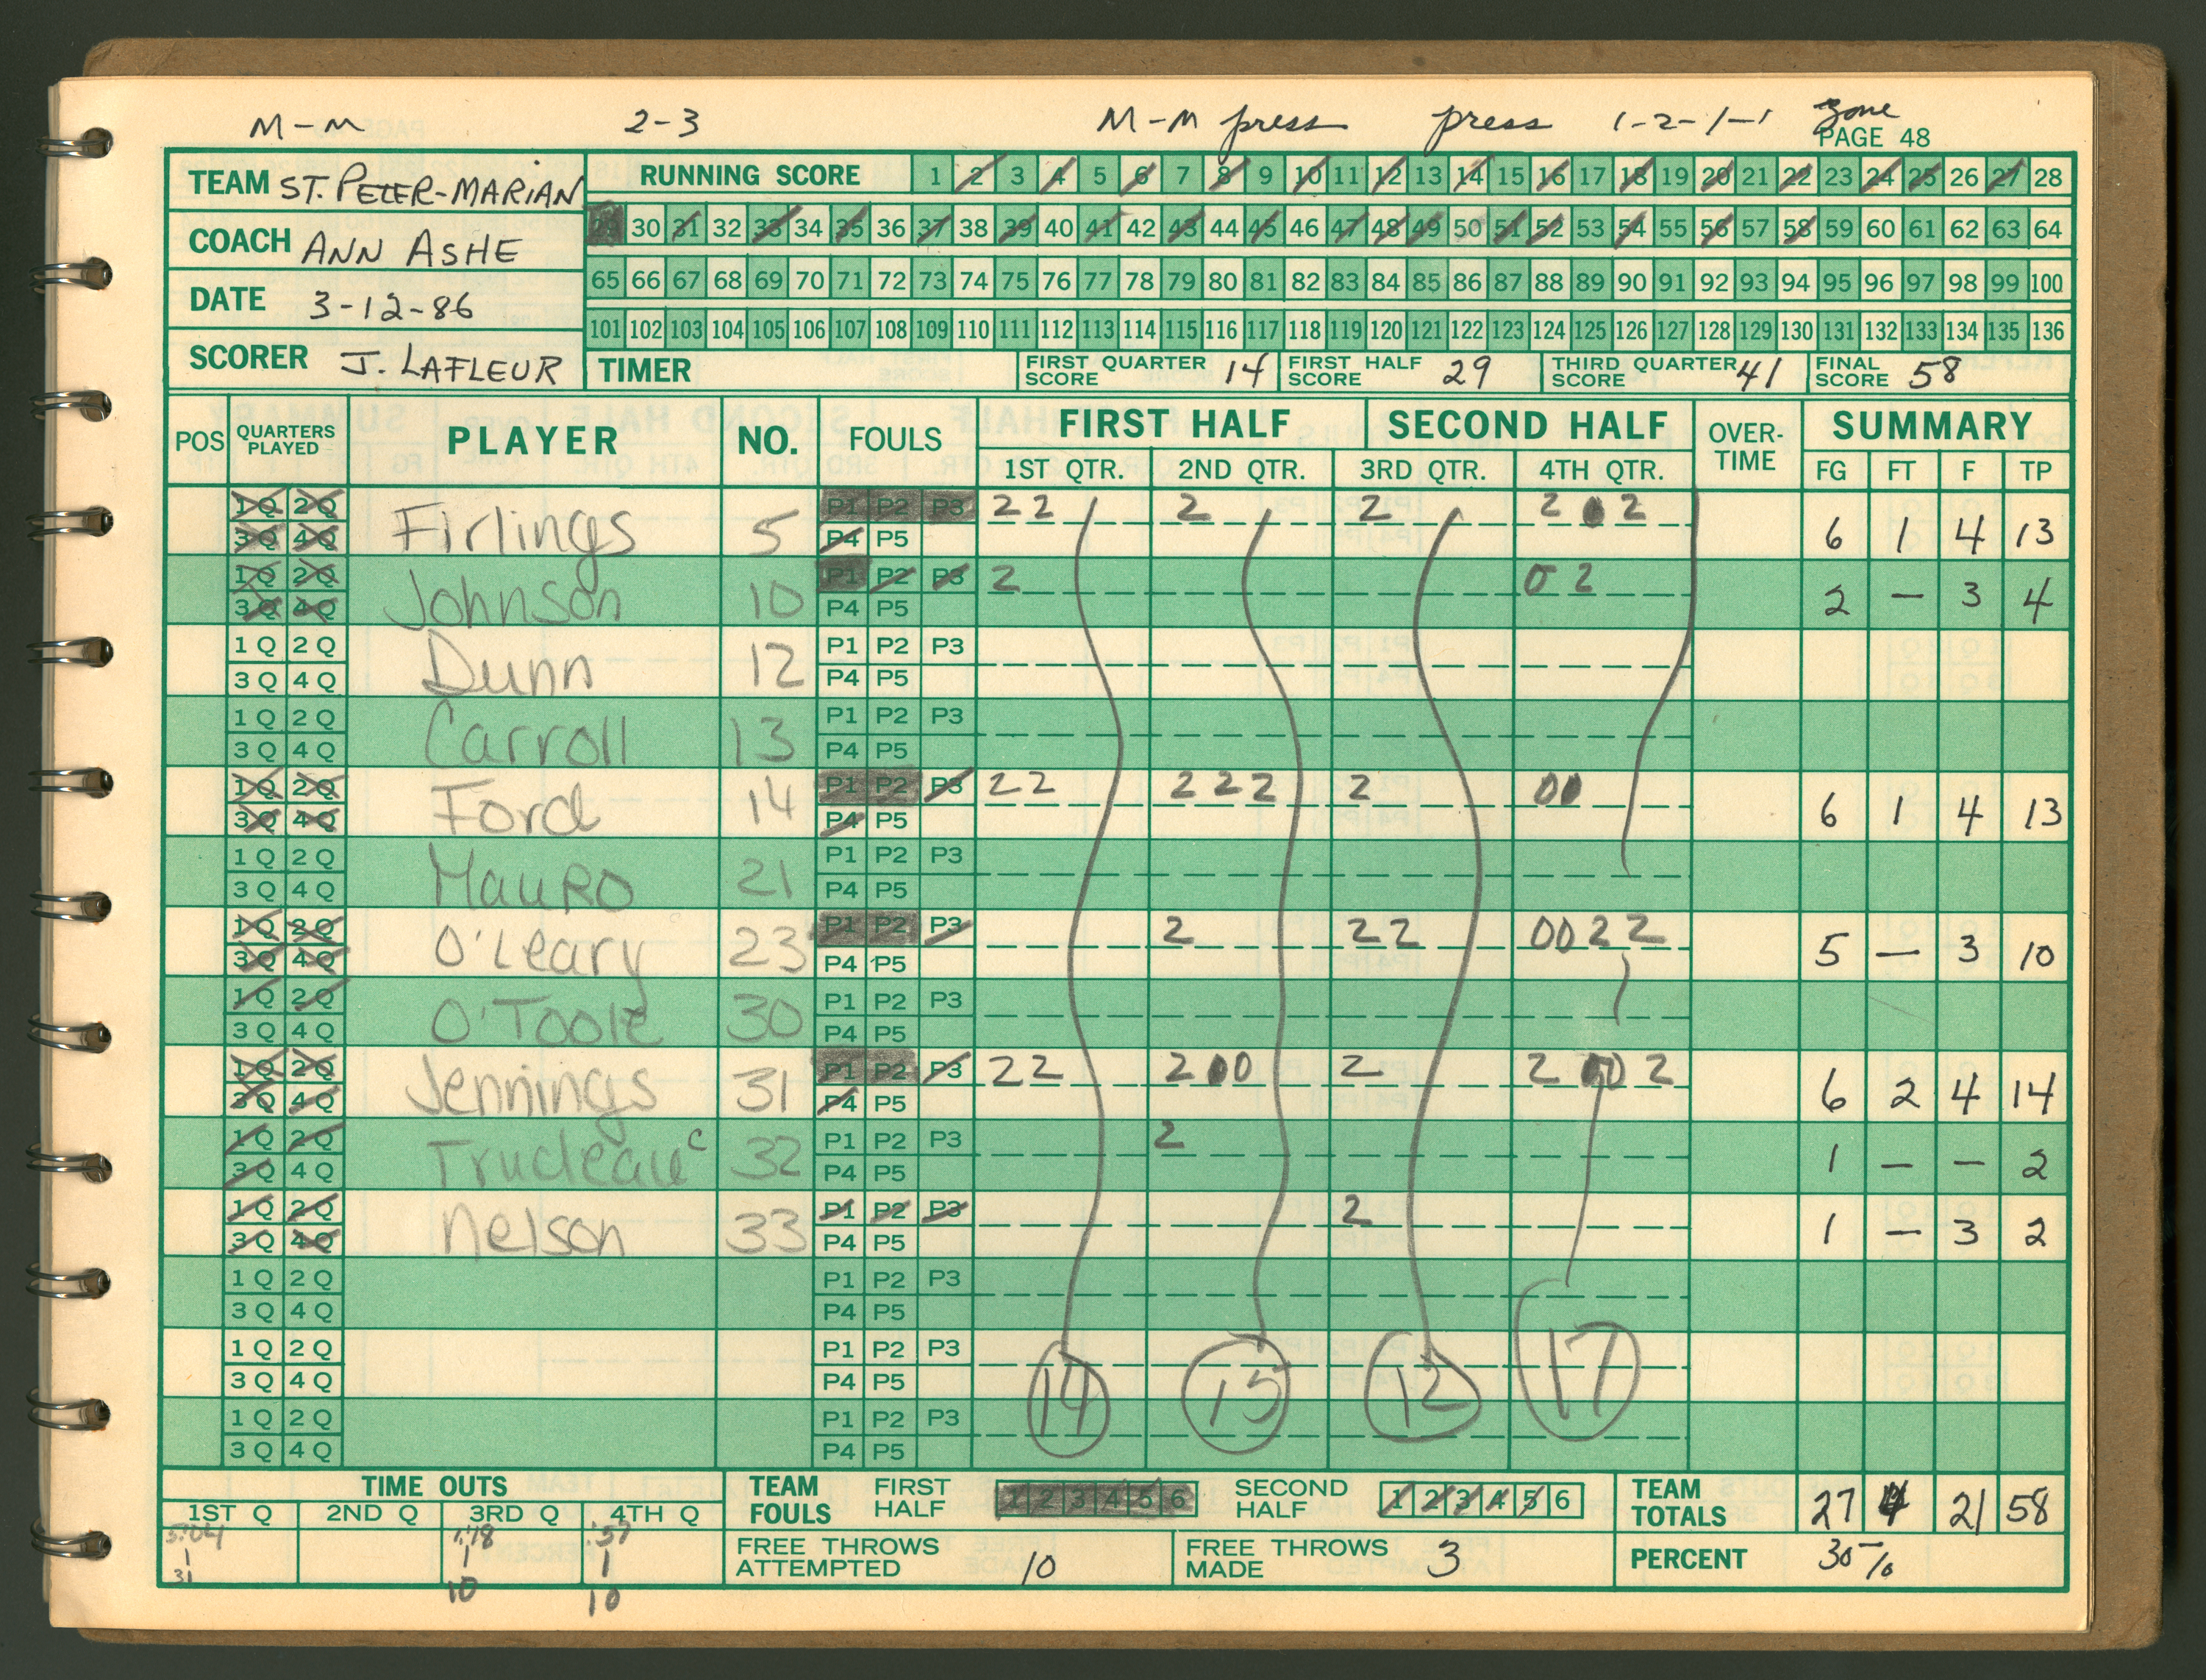 M-M 2-3 M-M press press 1-2-1-1 zone
PAGE 48
TEAM ST. PETER-MARIAN
COACH ANN ASHE
DATE 3-12-86
SCORER J. LAFLEUR
RUNNING SCORE 1 2 3 4 5 6 7 8 9 10 11 12 13 14 15 16 17 18 19 20 21 22 23 24 25 26 27 28
29 30 31 32 33 34 35 36 37 38 39 40 41 42 43 44 45 46 47 48 49 50 51 52 53 54 55 56 57 58 59 60 61 62 63 64
65 66 67 68 69 70 71 72 73 74 75 76 77 78 79 80 81 82 83 84 85 86 87 88 89 90 91 92 93 94 95 96 97 98 99 100
101 102 103 104 105 106 107 108 109 110 111 112 113 114 115 116 117 118 119 120 121 122 123 124 125 126 127 128 129 130 131 132 133 134 135 136
TIMER FIRST QUARTER SCORE 14 FIRST HALF SCORE 29 THIRD QUARTER SCORE 41 FINAL SCORE 58
POS QUARTERS PLAYED PLAYER NO. FOULS FIRST HALF SECOND HALF OVER-TIME SUMMARY
1ST QTR. 2ND QTR. 3RD QTR. 4TH QTR. FG FT F TP
1Q 2Q P1 P2 P3 2 2 2 2 2 0 2
3Q 4Q Firlings 5 P4 P5 6 1 4 13
1Q 2Q P1 P2 P3 2 0 2
3Q 4Q Johnson 10 P4 P5 2 — 3 4
1Q 2Q P1 P2 P3
3Q 4Q Dunn 12 P4 P5
1Q 2Q P1 P2 P3
3Q 4Q Carroll 13 P4 P5
1Q 2Q P1 P2 P3 2 2 2 2 2 2 0 0
3Q 4Q Ford 14 P4 P5 6 1 4 13
1Q 2Q P1 P2 P3
3Q 4Q Mauro 21 P4 P5
1Q 2Q P1 P2 P3 2 2 2 0 0 2 2
3Q 4Q O'Leary 23 P4 P5 5 — 3 10
1Q 2Q P1 P2 P3
3Q 4Q O'Toole 30 P4 P5
1Q 2Q P1 P2 P3 2 2 2 0 0 2 2 0 0 2
3Q 4Q Jennings 31 P4 P5 6 2 4 14
1Q 2Q P1 P2 P3 2
3Q 4Q Trudeau c 32 P4 P5 1 — — 2
1Q 2Q P1 P2 P3 2
3Q 4Q Nelson 33 P4 P5 1 — 3 2
1Q 2Q P1 P2 P3
3Q 4Q P4 P5
1Q 2Q P1 P2 P3
3Q 4Q P4 P5
1Q 2Q P1 P2 P3
3Q 4Q P4 P5
14 15 12 17
TIME OUTS
1ST Q 2ND Q 3RD Q 4TH Q
5:04 1:18 :57
1 1 1
31 10 10
TEAM FOULS FIRST HALF 1 2 3 4 5 6 SECOND HALF 1 2 3 4 5 6
FREE THROWS ATTEMPTED 10 FREE THROWS MADE 3
TEAM TOTALS 27 4 21 58
PERCENT 30%